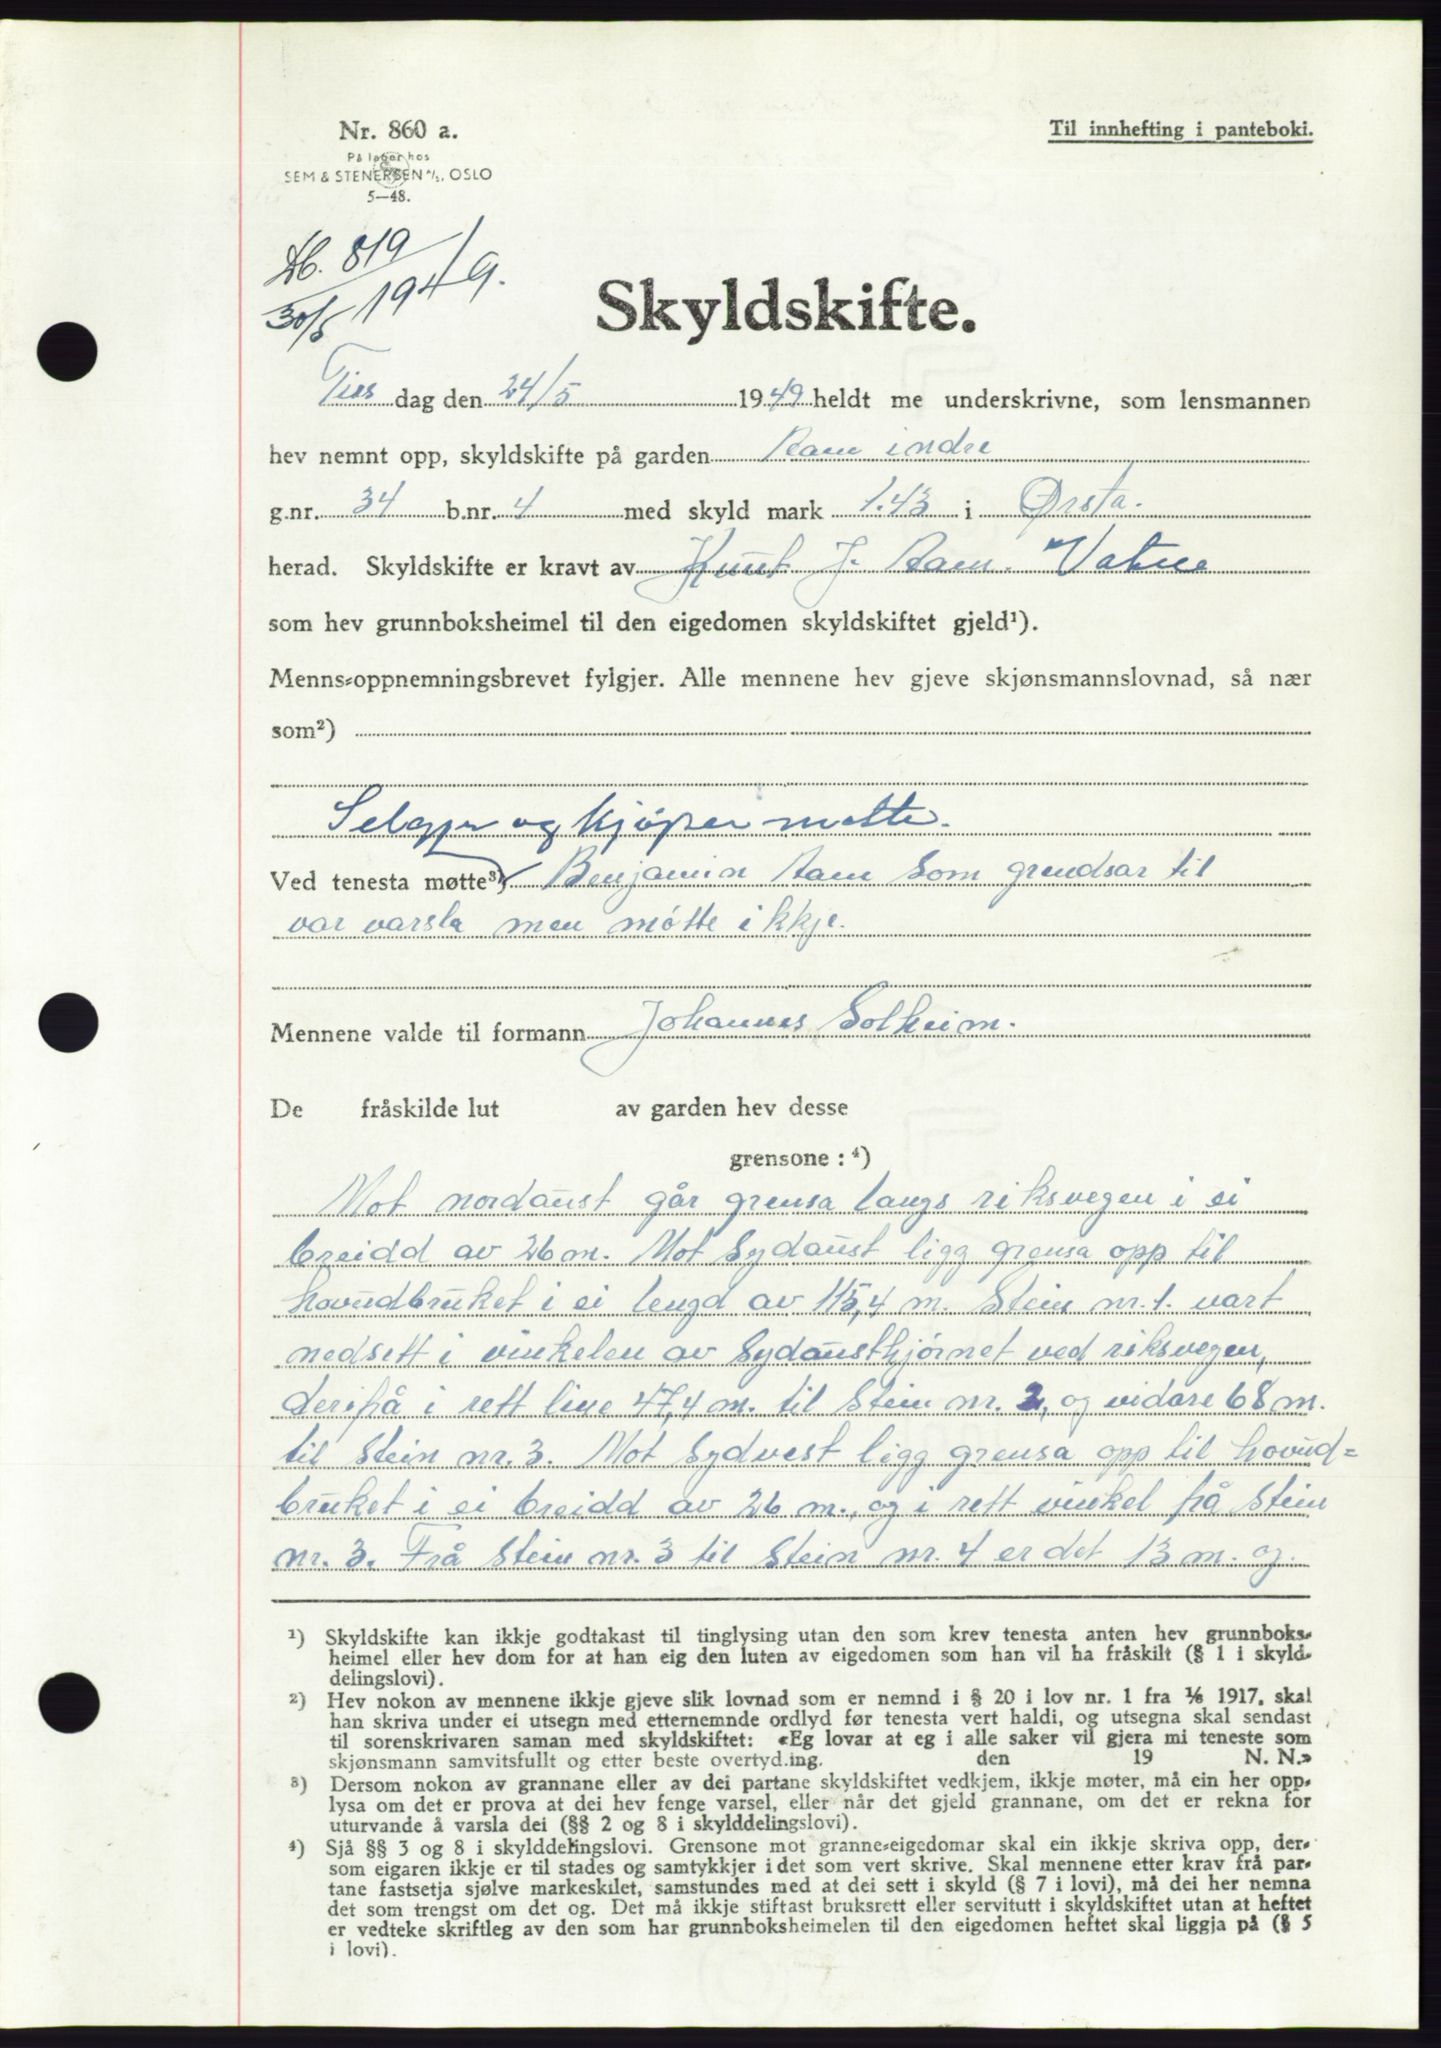 Nr. 860 a.
På lager hos
SEM & STENERSEN A/S, OSLO
5—48.
Til innhefting i panteboki.
Db. 819/1949.
30/5
Skyldskifte.
Tirs dag den 24/5 1949 heldt me underskrivne, som lensmannen
hev nemnt opp, skyldskifte på garden Aam indre
g.nr. 34 b.nr. 4 med skyld mark 1.43 i Ørsta.
herad. Skyldskifte er kravt av Knut J. Aam. Vatne
som hev grunnboksheimel til den eigedomen skyldskiftet gjeld¹).
Menns-oppnemningsbrevet fylgjer. Alle mennene hev gjeve skjønsmannslovnad, så nær
som²)
Seljar og kjøper møtte.
Ved tenesta møtte³) Benjamin Aam som grendsar til
var varsla men møtte ikkje.
Mennene valde til formann Johannes Solheim.
De fråskilde lut av garden hev desse
grensone : ⁴)
Mot nordaust går grensa langs riksvegen i ei
breidd av 26 m. Mot Sydaust ligg grensa opp til
hovudbruket i ei lengd av 115,4 m. Stein nr. 1. vart
nedsett i vinkelen av Sydausthjørnet ved riksvegen,
derifrå i rett line 47,4 m. til Stein nr. 2, og vidare 68 m.
til Stein nr. 3. Mot Sydvest ligg grensa opp til hovud=
bruket i ei breidd av 26 m., og i rett vinkel frå Stein
nr. 3. Frå Stein nr. 3 til Stein nr. 4 er det 13 m. og.
¹) Skyldskifte kan ikkje godtakast til tinglysing utan den som krev tenesta anten hev grunnboks-
heimel eller hev dom for at han eig den luten av eigedomen som han vil ha fråskilt (§ 1 i skyld-
delingslovi).
²) Hev nokon av mennene ikkje gjeve slik lovnad som er nemnd i § 20 i lov nr. 1 fra 1/6 1917, skal
han skriva under ei utsegn med etternemnde ordlyd før tenesta vert haldi, og utsegna skal sendast
til sorenskrivaren saman med skyldskiftet: «Eg lovar at eg i alle saker vil gjera mi teneste som
skjønsmann samvitsfullt og etter beste overtyd.ing. den 19 N. N.»
³) Dersom nokon av grannane eller av dei partane skyldskiftet vedkjem, ikkje møter, må ein her opp-
lysa om det er prova at dei hev fenge varsel, eller når det gjeld grannane, om det er rekna for
uturvande å varsla dei (§§ 2 og 8 i skylddelingslovi).
⁴) Sjå §§ 3 og 8 i skylddelingslovi. Grensone mot granne-eigedomar skal ein ikkje skriva opp, der-
som eigaren ikkje er til stades og samtykkjer i det som vert skrive. Skal mennene etter krav frå par-
tane fastsetja sjølve markeskilet, samstundes med at dei sett i skyld (§ 7 i lovi), må dei her nemna
det som trengst om det og. Det må ikkje stiftast bruksrett eller servitutt i skyldskiftet utan at heftet
er vedteke skriftleg av den som har grunnboksheimelen til den eigedomen heftet skal liggja på (§ 5
i lovi).